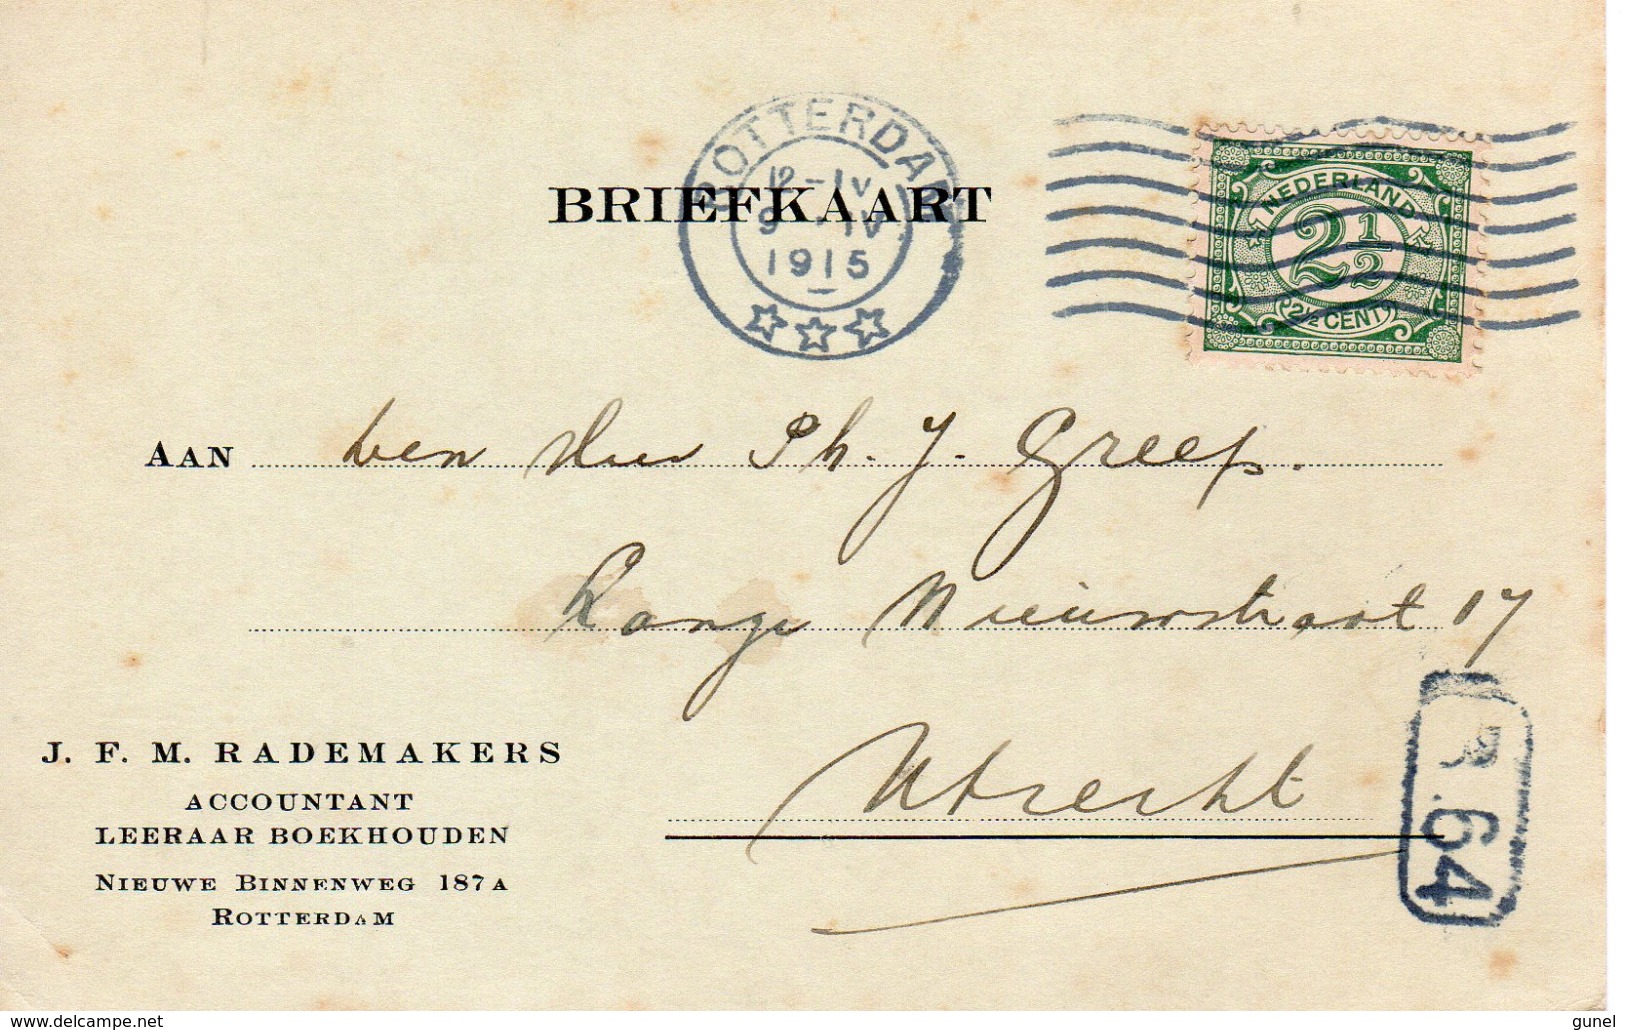 ROTTERDAM
12-IV
9 - IV
1915
BRIEFKAART
NEDERLAND
2½
2½ CENT
AAN den Heer Ph. J. Greep.
Lange Nieuwstraat 17
Utrecht
R.64
J. F. M. RADEMAKERS
ACCOUNTANT
LEERAAR BOEKHOUDEN
NIEUWE BINNENWEG 187A
ROTTERDAM
www.delcampe.net
gunel